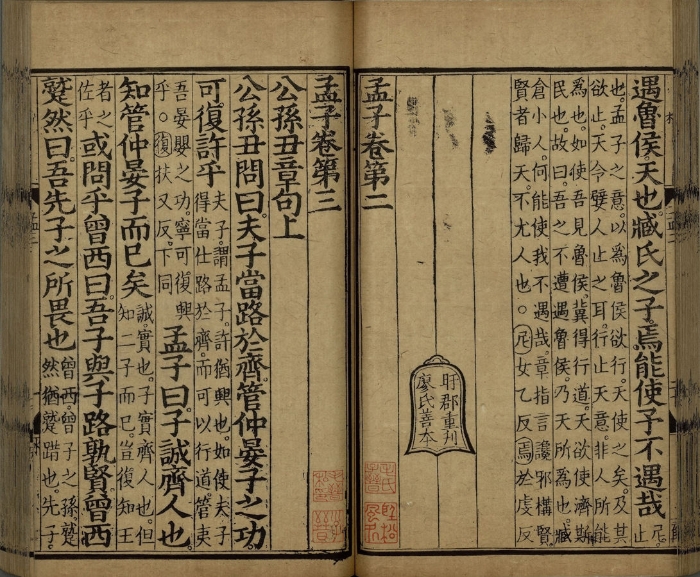 遇魯侯天也。臧氏之子。焉能使予不遇哉尼。止
也。孟子之意。以爲魯侯欲行。天使之矣。及其
欲止。天令嬖人止之耳。行止天意。非人所能
爲也。如使吾見魯侯。冀得行道。天欲使濟斯
民也。故曰。吾之不遭遇魯侯。乃天所爲也。臧
倉小人。何能使我不遇哉。章指言讒邪構賢。
賢者歸天。不尤人也。○尼女乙反○焉於虔反
孟子卷第二
盱郡重刋
廖氏善本
孟子卷第三
公孫丑章句上
公孫丑問曰。夫子當路於齊。管仲晏子之功。
可復許乎夫子。謂孟子。許猶興也。如使夫子
得當仕路於齊。而可以行道。管夷
吾晏嬰之功。寧可復興
乎。○復扶又反。下同孟子曰。子誠齊人也。
知管仲晏子而已矣誠。實也。子實齊人也。但
知二子而已。豈復知王
者之
佐乎。或問乎曾西曰。吾子與子路孰賢。曾西
蹵然曰。吾先子之所畏也曾西。曾子之孫。蹵
然猶蹵踖也。先子。